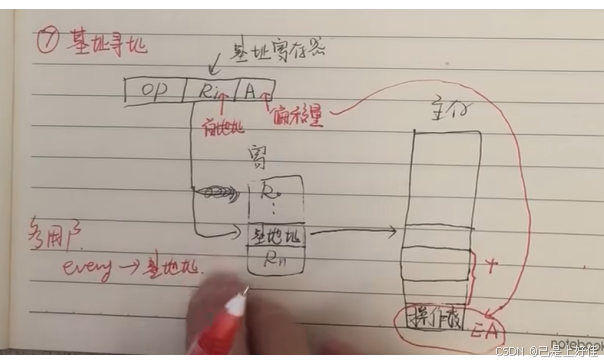 ⑦ 基址寻址
基址寄存器
OP Ri A
偏移量
主存
寄
R₀
⋮
基地址
Rn
多用户
every → 基地址.
+
操作数 EA
notebook
CSDN @已是上好佳